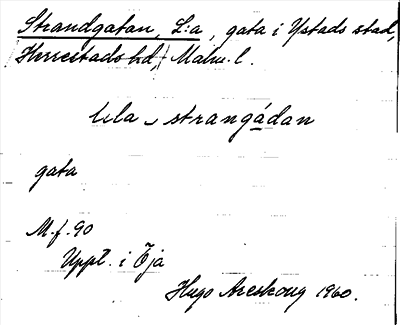 Strandgatan, L:a, gata i Ystads stad,
Herrestads hd, Malm. l.
lela ̮ strangádan
gata
M.f. 90
Uppt. i Öja
Hugo Areskoug 1960.